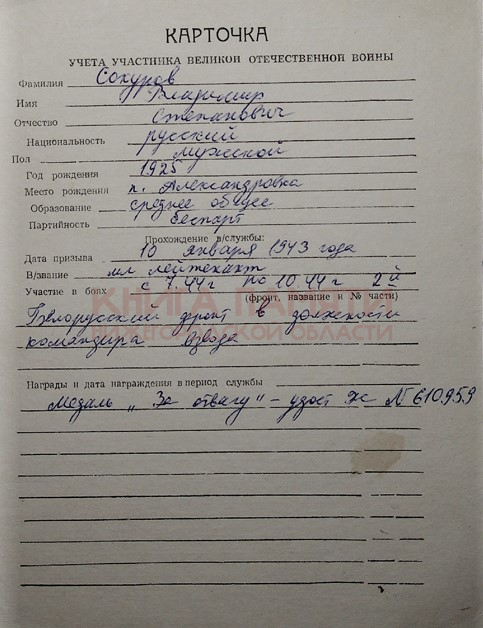 КАРТОЧКА
УЧЕТА УЧАСТНИКА ВЕЛИКОЙ ОТЕЧЕСТВЕННОЙ ВОЙНЫ
Фамилия Сокуров
Имя Владимир
Отчество Степанович
Национальность русский
Пол мужской
Год рождения 1925
Место рождения п. Александровка
Образование среднее общее
Партийность беспарт
Прохождение в/службы:
Дата призыва 10 января 1943 года
В/звание мл лейтенант
Участие в боях с 7.44г по 10.44г 2й
(фронт, название и № части)
КНИГА ПАМЯТИ
Белорусский фронт в должности
НИЖЕГОРОДСКОЙ ОБЛАСТИ
командира взвода
Награды и дата награждения в период службы
Медаль „За отвагу" – удост Ж № 610959